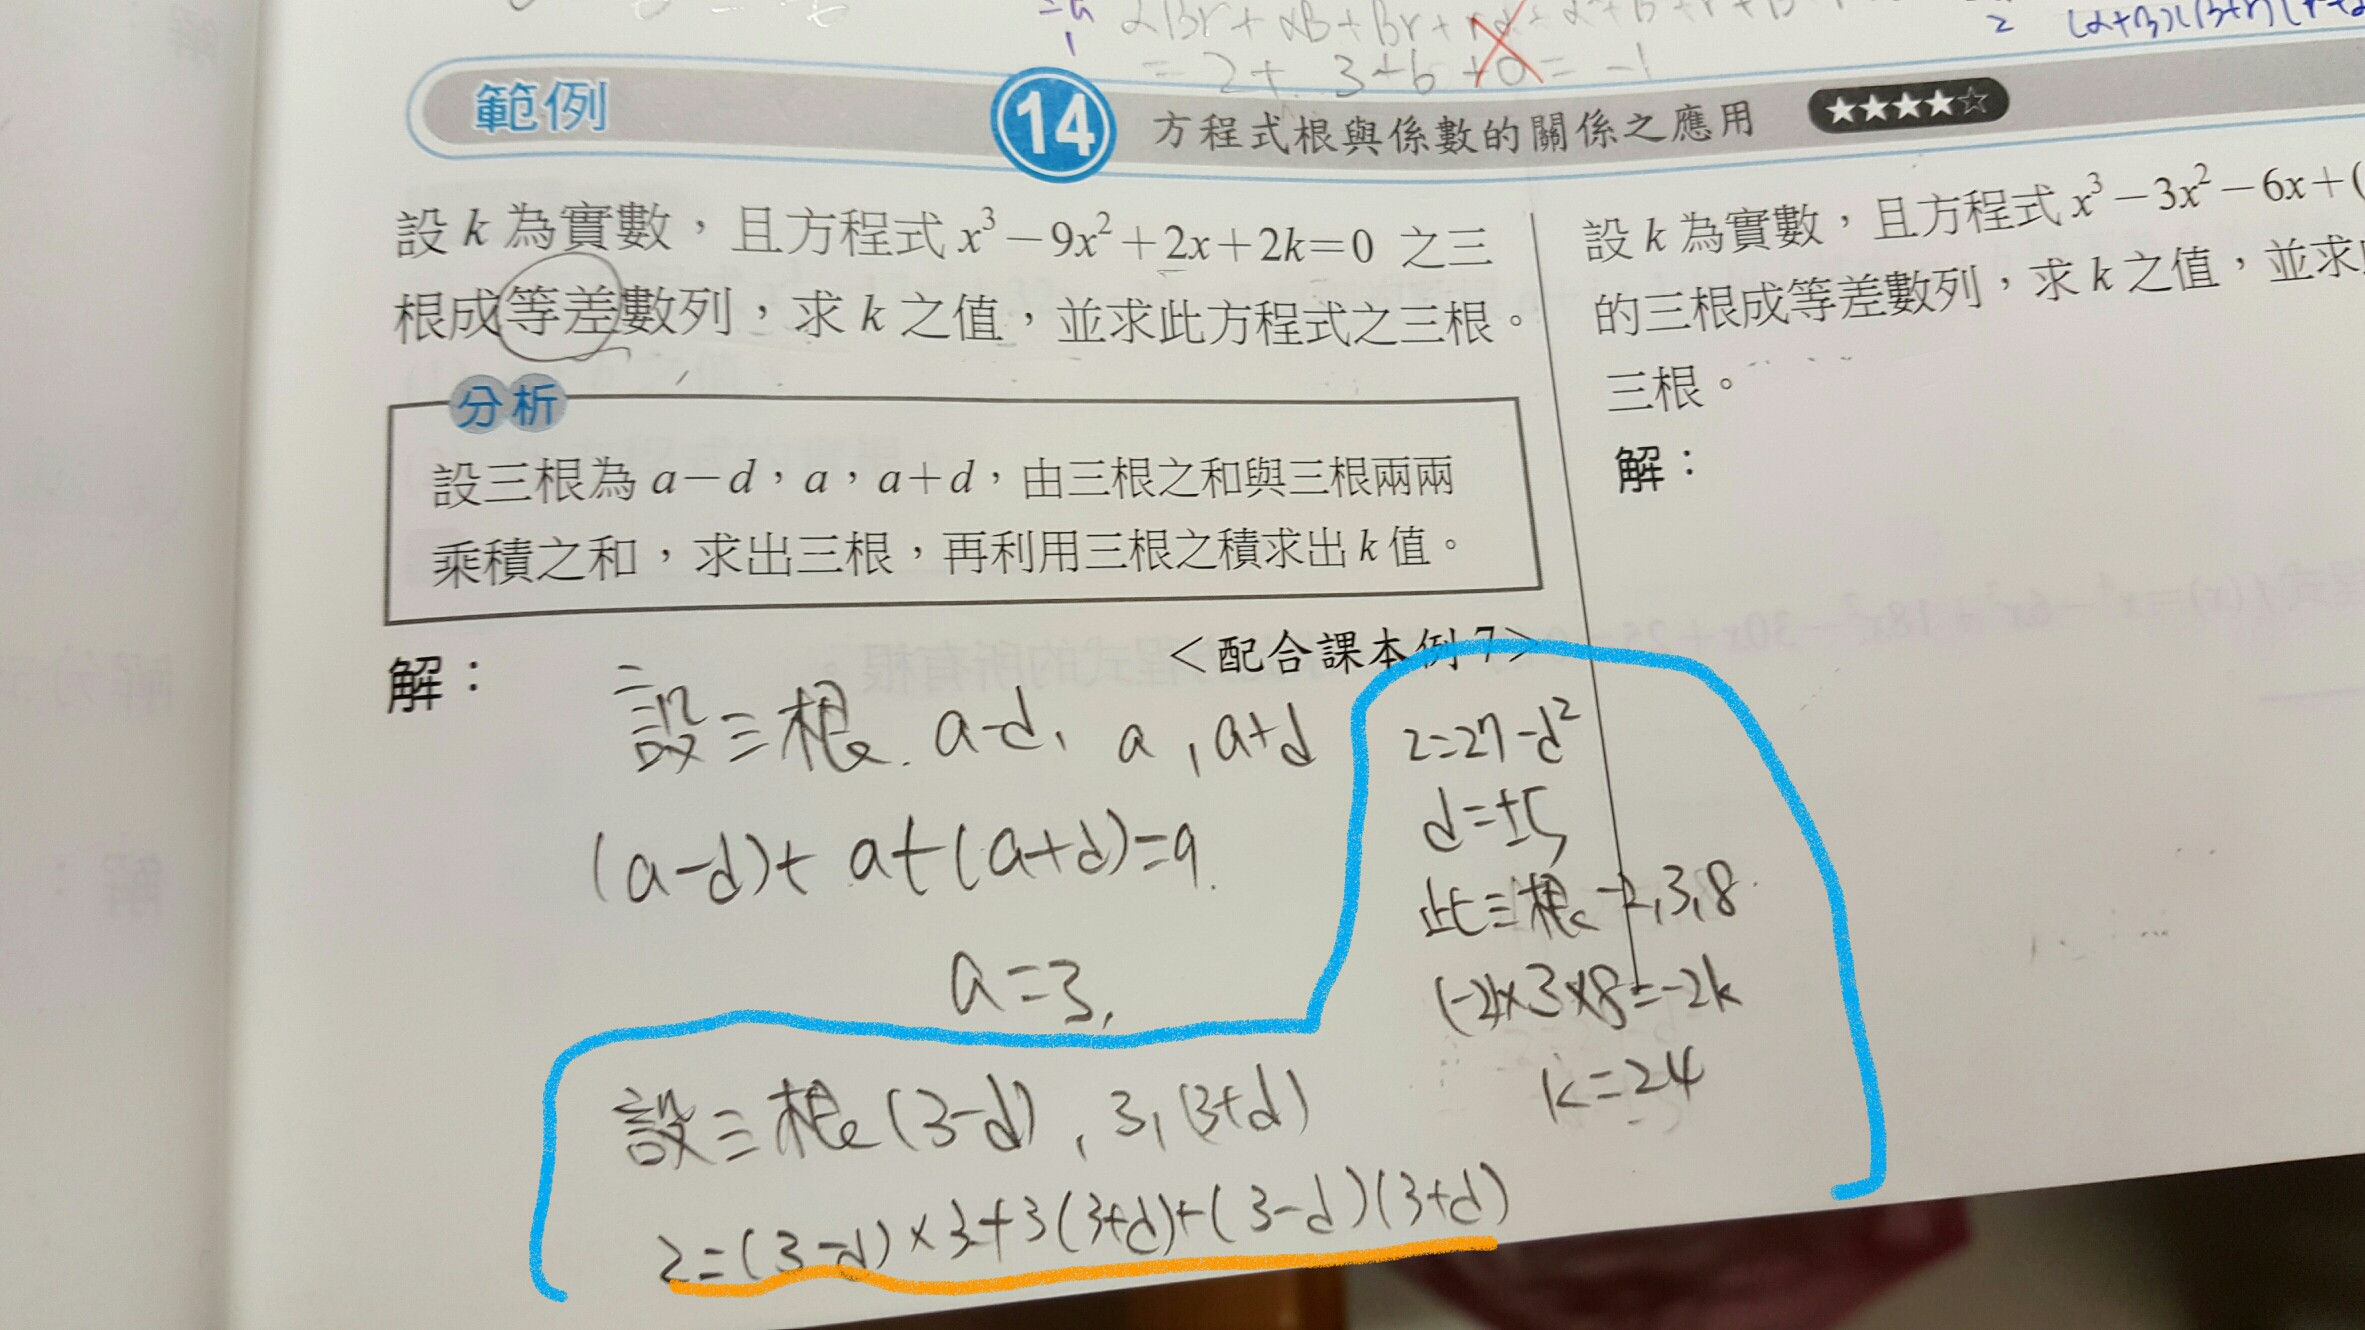 = 2 + 3 + 6 + 0 = -1
範例 14 方程式根與係數的關係之應用 ★★★★☆
設 k 為實數，且方程式 x³－9x²＋2x＋2k＝0 之三
根成等差數列，求 k 之值，並求此方程式之三根。
分析
設三根為 a－d，a，a＋d，由三根之和與三根兩兩
乘積之和，求出三根，再利用三根之積求出 k 值。
＜配合課本例 7＞
解：
設三根 a-d, a, a+d
(a-d)+a+(a+d)=9
a=3,
設三根(3-d), 3, (3+d)
2=(3-d)×3+3(3+d)+(3-d)(3+d)
2=27-d²
d=±5
此三根-2,3,8
(-2)×3×8=-2k
k=24
設 k 為實數，且方程式 x³－3x²－6x＋(
的三根成等差數列，求 k 之值，並求
三根。
解：